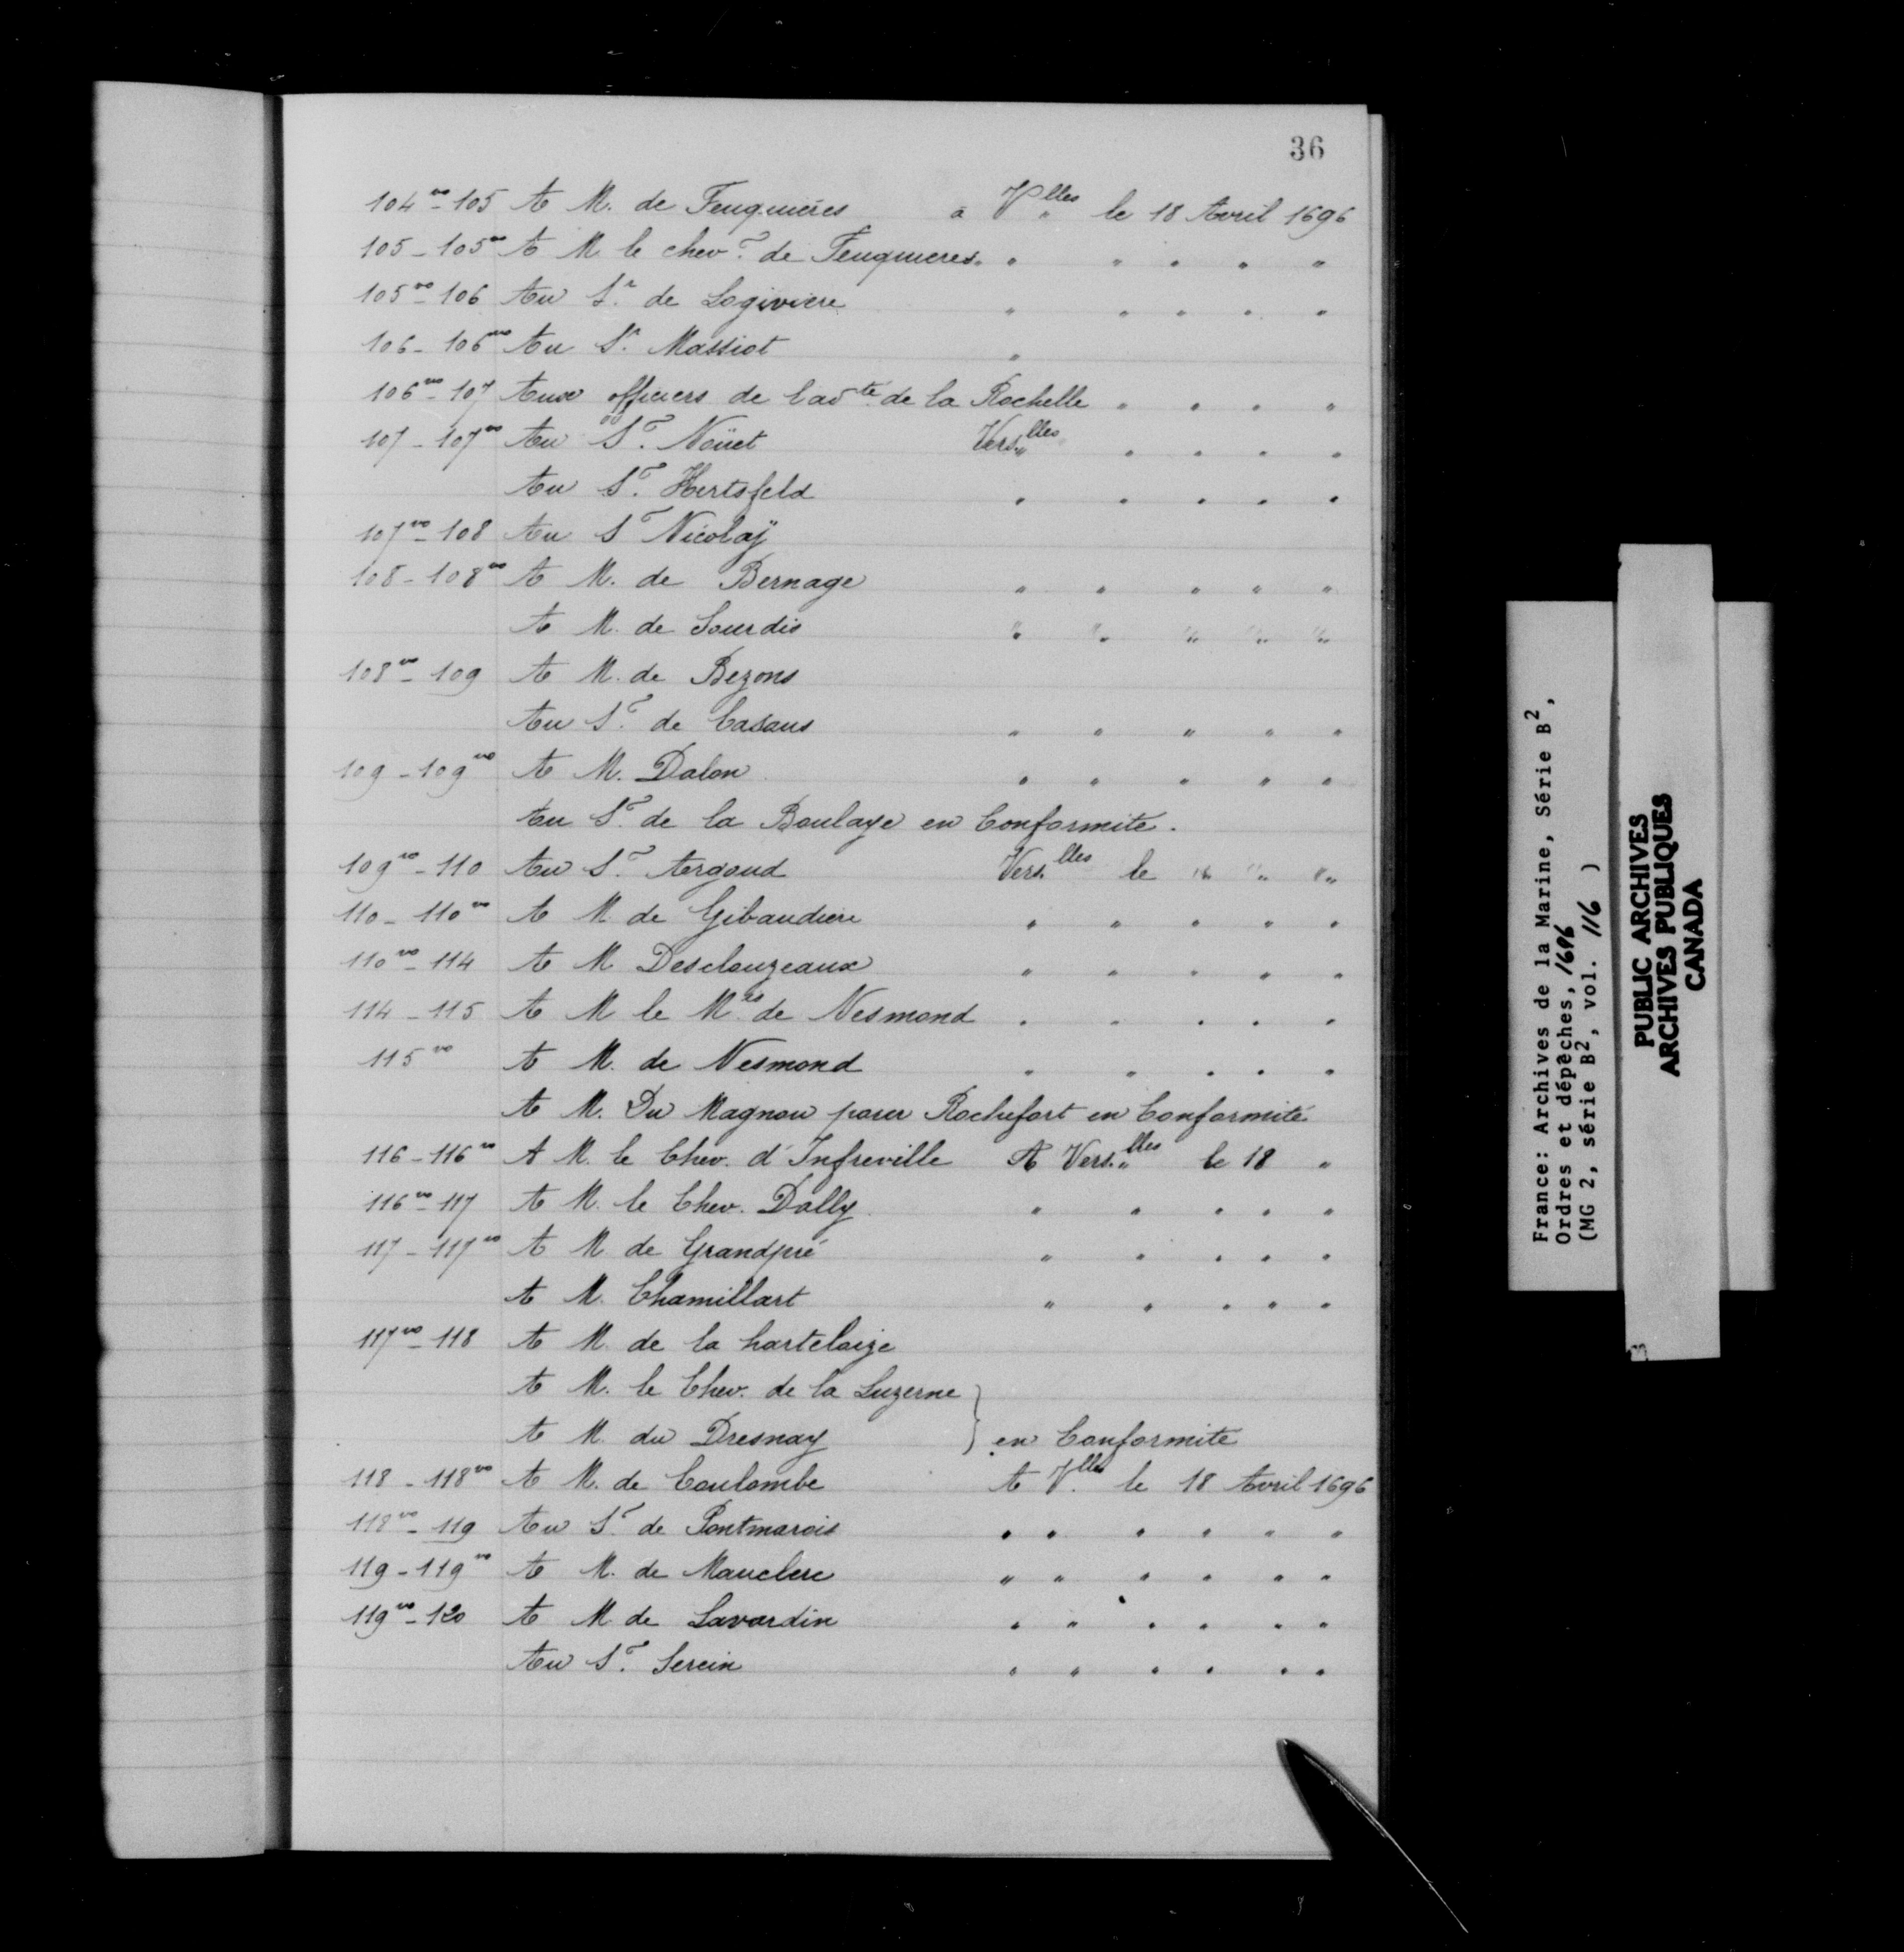 36
104vo-105 A M. de Feuquières à Vlles le 18 Avril 1696
105-105vo A M le chevr. de Feuquieres " " " " "
105vo-106 Au Sr. de Logiviere " " " " "
106-106vo Au Sr. Massiot "
106vo-107 Aux officiers de l'adté de la Rochelle " " " "
107-107vo Au Sr. Noüet Verslles " " " "
Au Sr. Hertsfeld " " " " "
107vo-108 Au Sr Nicolaÿ
108-108vo A M. de Bernage " " " " "
A M. de Sourdis " " " " "
108vo-109 A M. de Bezons
Au Sr. de Casaus " " " " "
109-109vo A M. Dalon " " " " "
Au Sr. de la Boulaye en Conformité.
109vo-110 Au Sr. Argoud Vers.lles le " " "
110-110vo A M de Gibaudiere " " " " "
110vo-114 A M Desclouzeaux " " " " "
114-115 A M le Mis de Nesmond " " " " "
115vo A M. de Nesmond " " " " "
A M. Du Magnou pour Rochefort en Conformité
116-116vo A M. le Chev. d'Infreville A Vers.lles le 18 "
116vo-117 A M. le Chev. Dally " " " " "
117-117vo A M de Grandpré " " " " "
A M. Chamillart " " " " "
117vo-118 A M. de la harteloize
A M. le Chev. de la Luzerne }
A M. du Dresnay } en Conformité
118-118vo A M. de Coulombe A Vlles le 18 Avril 1696
118vo-119 Au Sr de Pontmarois " " " " " "
119-119vo A M. de Mauclerc " " " " " "
119vo-120 A M de Lavardin " " " " " "
Au Sr. Serein " " " " " "
France: Archives de la Marine, Série B2,
Ordres et dépêches, 1696
(MG 2, série B2, vol. 116 )
PUBLIC ARCHIVES
ARCHIVES PUBLIQUES
CANADA